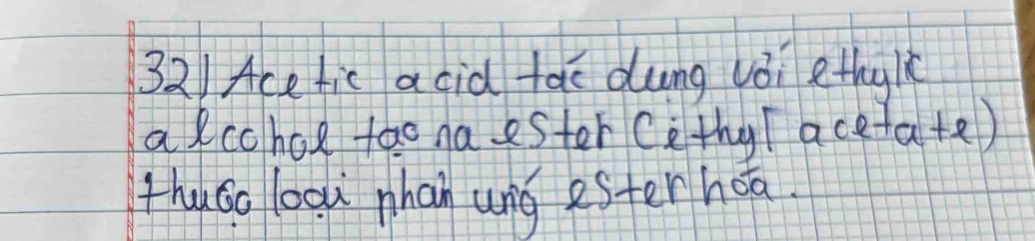 32) Acetic acid tác dụng với ethylic
alcohol tạo ra ester (ethyl acetate)
thuộc loại phản ứng ester hóa.